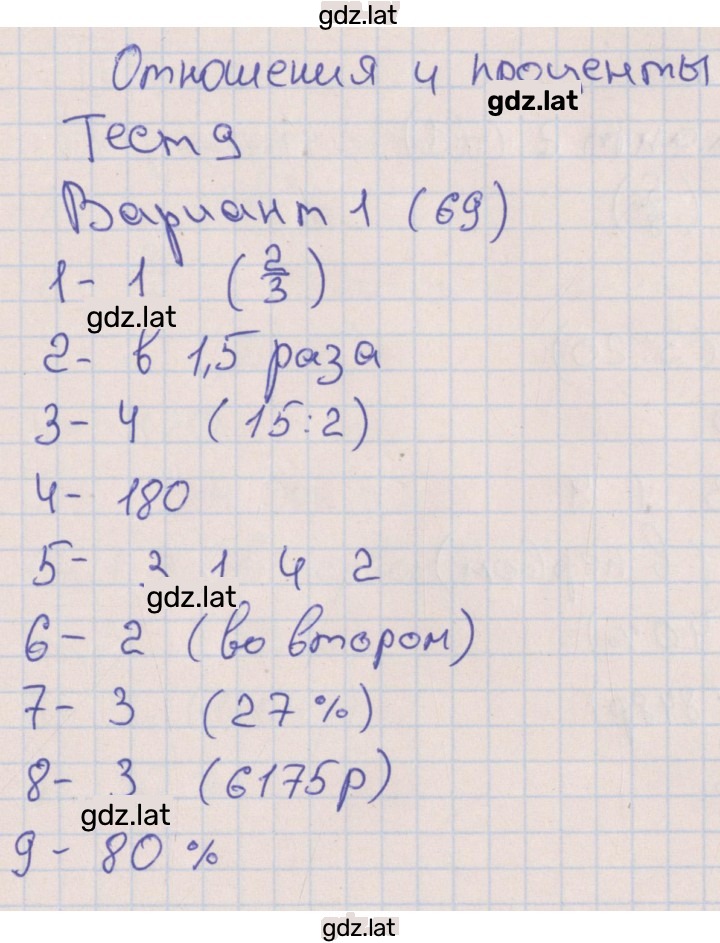 gdz.lat
Отношения и проценты
gdz.lat
Тест 9
Вариант 1 (69)
1- 1 (2/3)
gdz.lat
2- в 1,5 раза
3- 4 (15:2)
4- 180
5- 3 1 4 2
gdz.lat
6- 2 (во втором)
7- 3 (27%)
8- 3 (6175р)
gdz.lat
9- 80%
gdz.lat